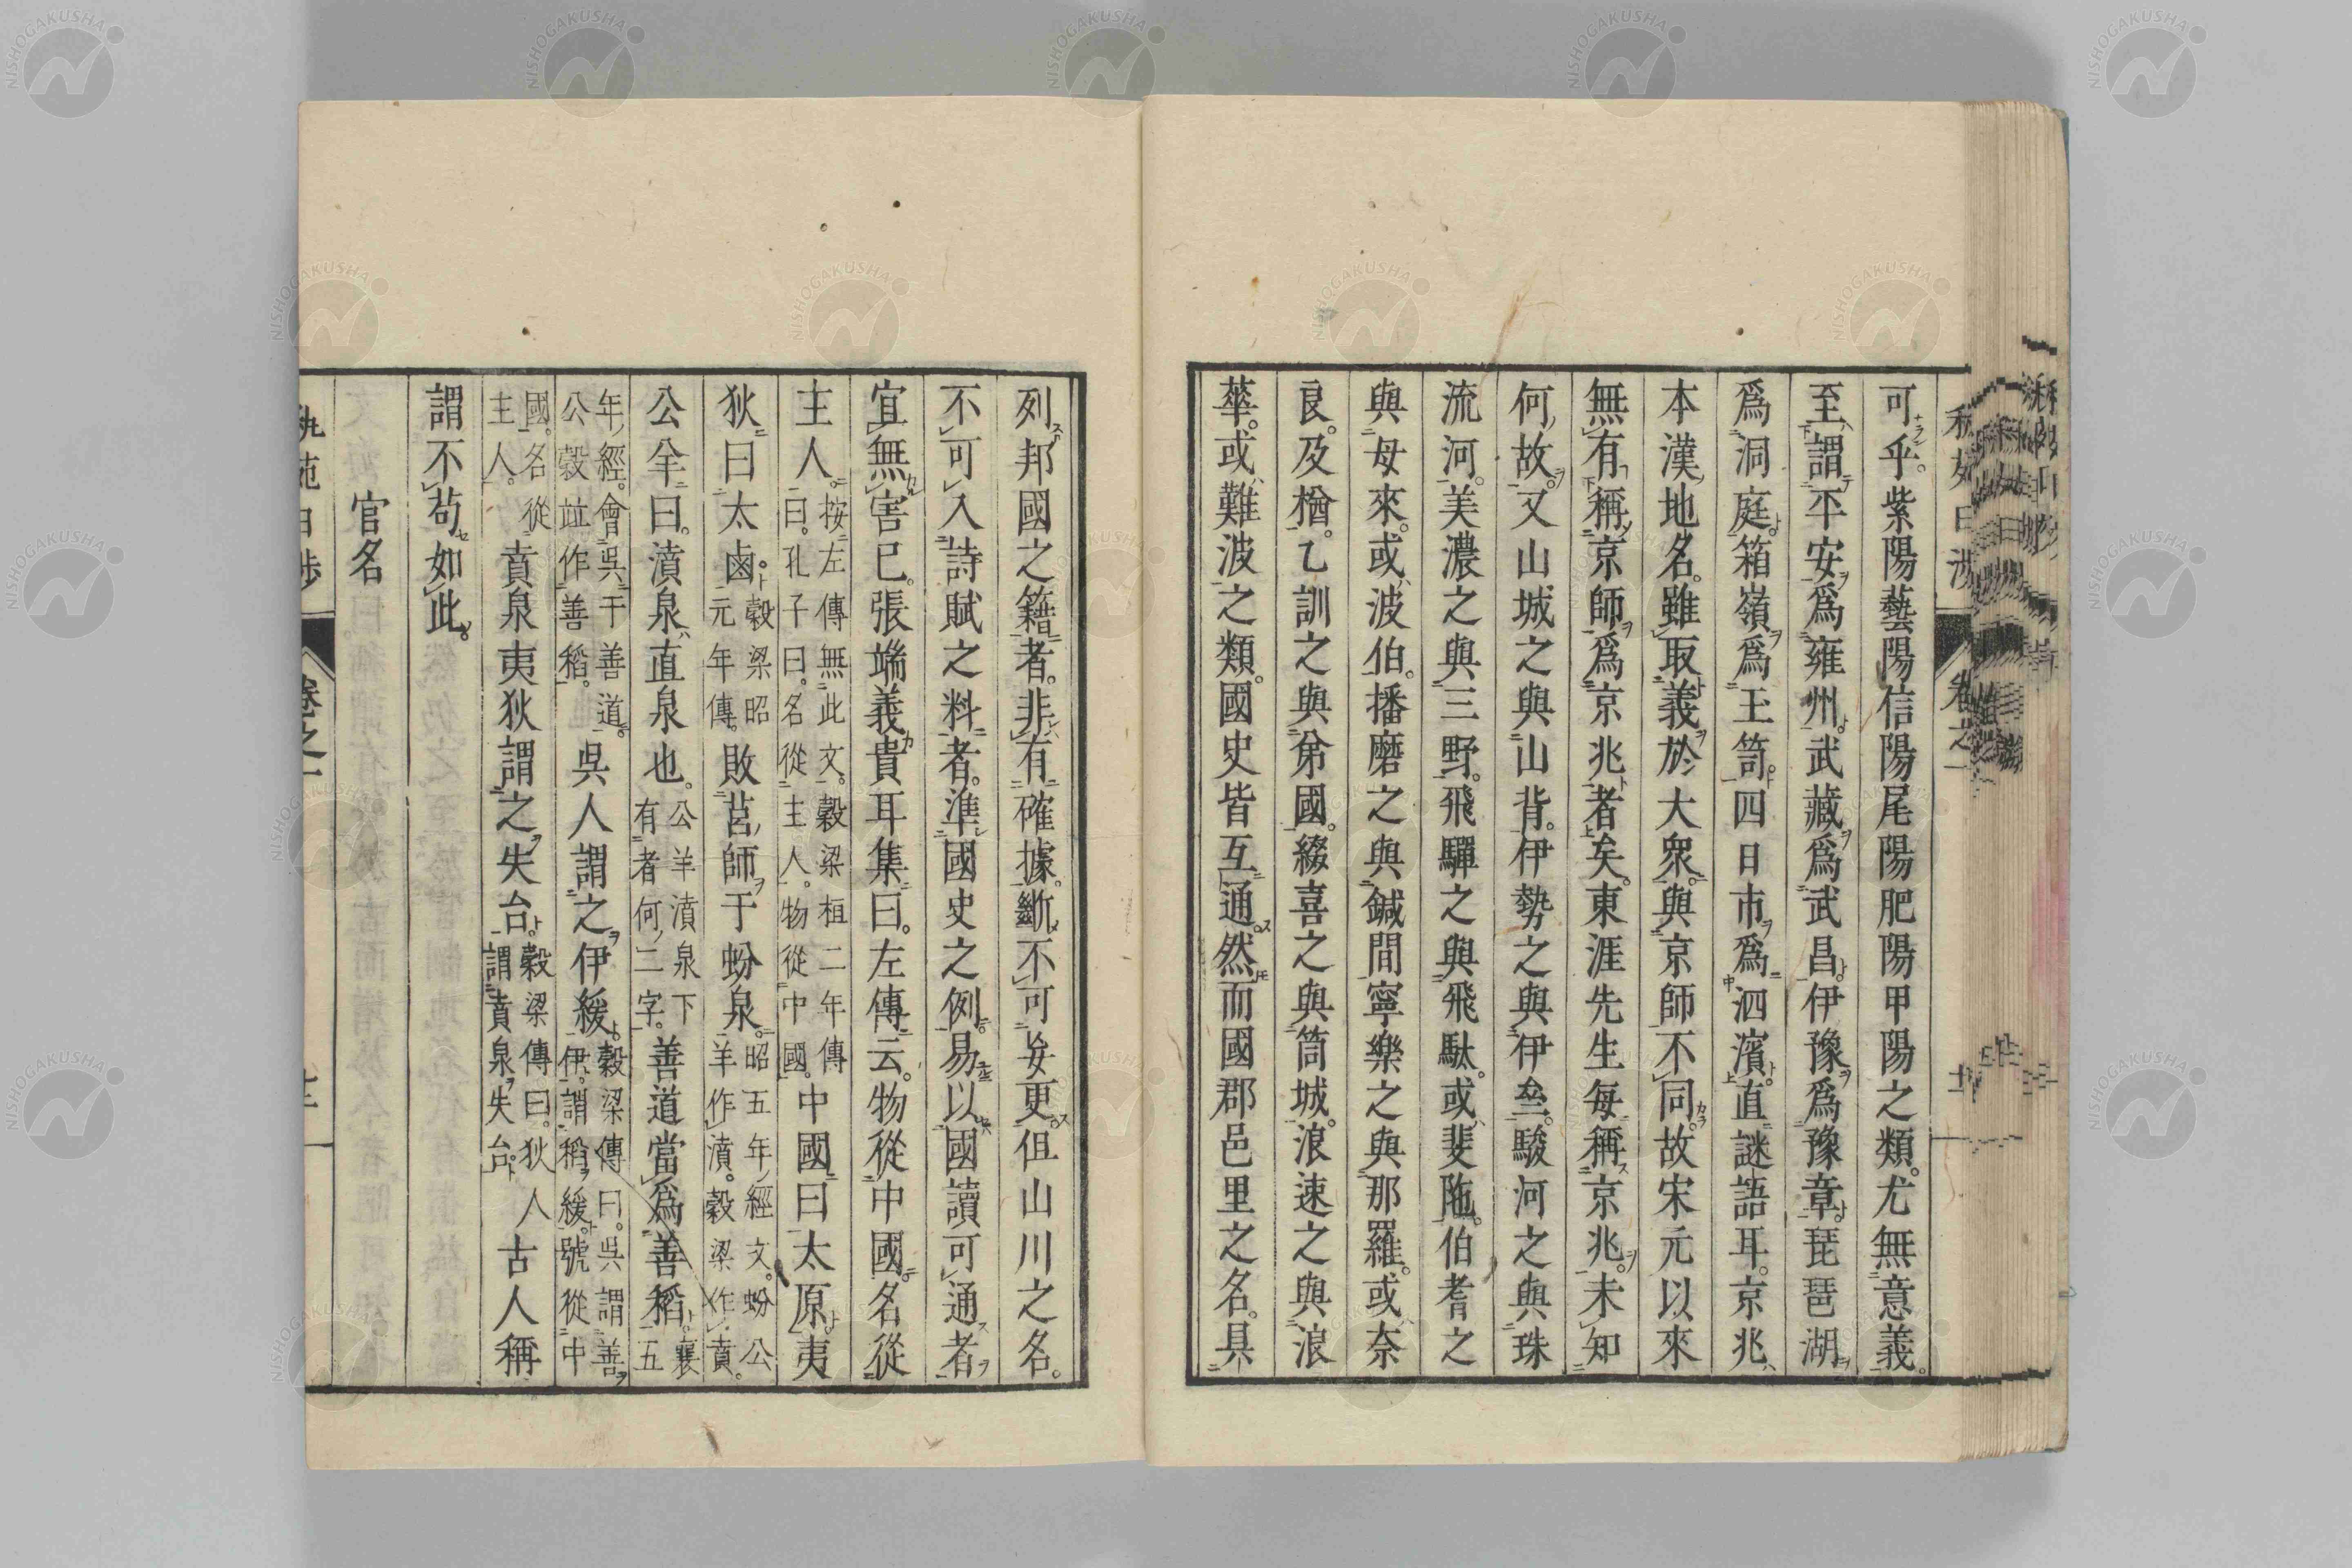 可乎。紫陽藝陽信陽尾陽肥陽甲陽之類。尤無意義。
至謂平安爲雍州。武藏爲武昌。伊豫爲豫章。琵琶湖
爲洞庭。箱嶺爲王笥。四日市爲泗濱。直謎語耳。京兆
本漢地名。雖取義於大衆。與京師不同。故宋元以來
無有稱京師爲京兆者矣。東涯先生每稱京兆。未知
何故。又山城之與山背。伊勢之與伊垒。駿河之與珠
流河。美濃之與三野。飛驒之與飛駄。或斐陁。伯耆之
與母來。或波伯。播磨之與鍼間。寧樂之與那羅。或奈
良。及櫓。乙訓之與弟國。綴喜之與筒城。浪速之與浪
華。或難波之類。國史皆互通。然而國郡邑里之名。具
列邦國之籍者。非有確據。斷不可妄更。但山川之名。
不可入詩賦之料者。準國史之例。易以國讀可通者
宜無害已。張端義貴耳集曰。左傳云。物從中國。名從
主人。按左傳無此文。穀梁桓二年傳曰。孔子曰。名從主人。物從中國。中國曰太原。夷
狄曰太鹵。穀梁昭元年傳。敗莒師于蚡泉。昭五年經文。蚡公羊作濆。穀梁作賁。
公羊曰。濆泉直泉也。公羊濆泉下有者何二字。善道當爲善稻。襄五
年經。會吳于善道。公穀並作善稻。吳人謂之伊緩。穀梁傳曰。吳謂善伊。謂稻緩。號從中
國。名從主人。賁泉夷狄謂之失台。穀梁傳曰。狄人謂賁泉失台。古人稱
謂不苟如此。
官名
卷之一